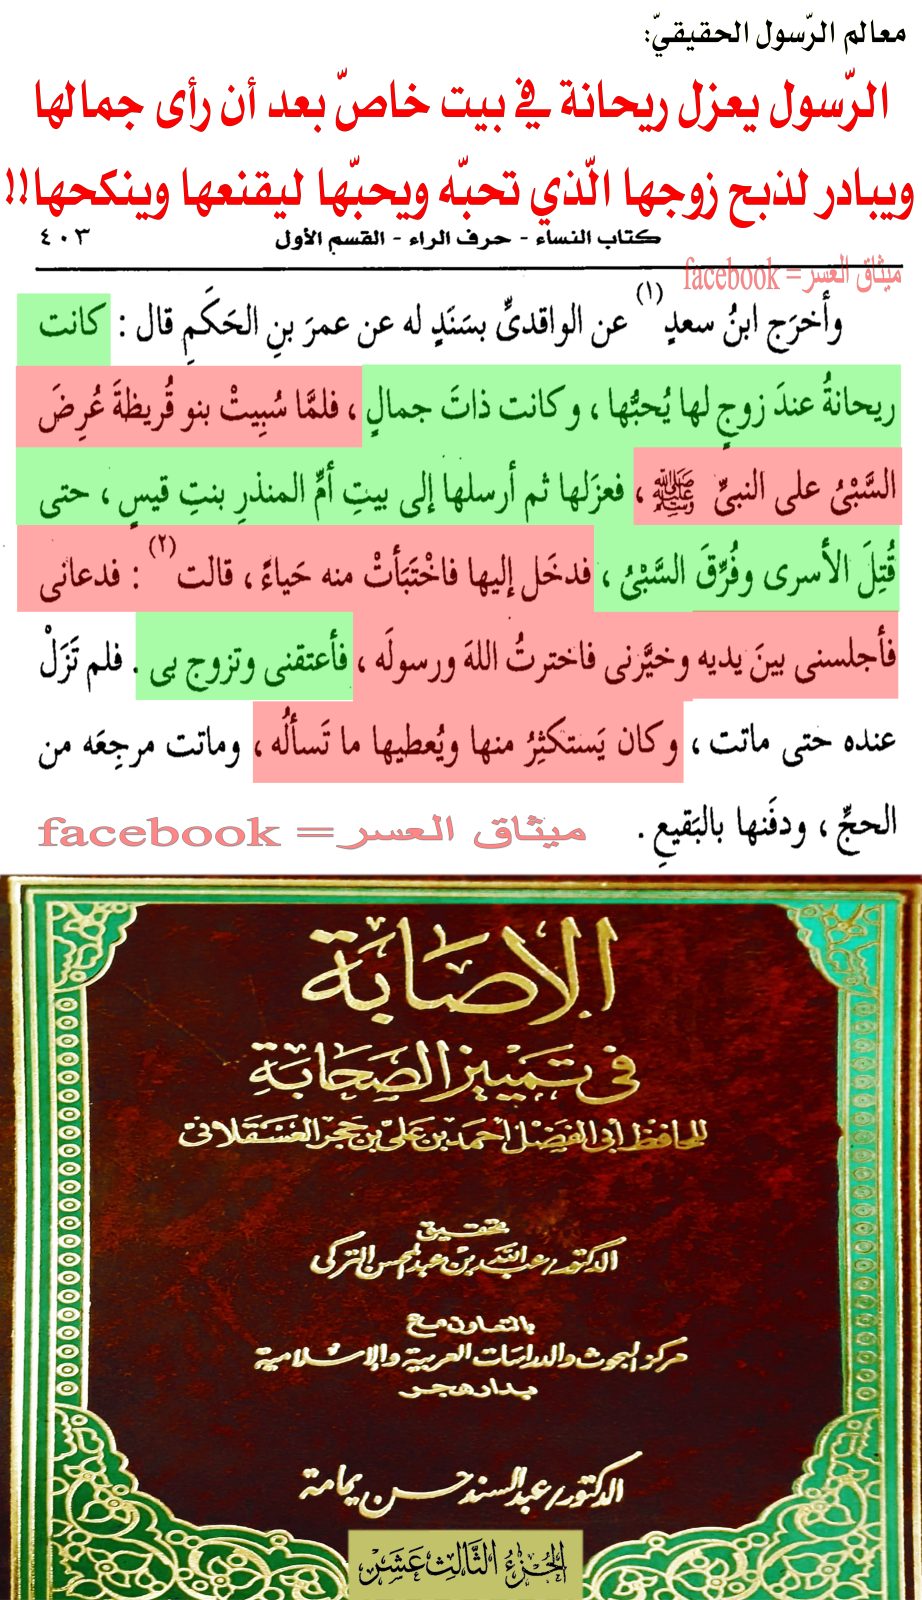 معالم الرّسول الحقيقيّ:
الرّسول يعزل ريحانة في بيت خاصّ بعد أن رأى جمالها
ويبادر لذبح زوجها الّذي تحبّه ويحبّها ليقنعها وينكحها!!
كتاب النساء - حرف الراء - القسم الأول ٤٠٣
ميثاق العسر= facebook
وأخرَج ابنُ سعدٍ(١) عن الواقدىِّ بسَنَدٍ له عن عمرَ بنِ الحَكَمِ قال : كانت
ريحانةُ عندَ زوجٍ لها يُحبُّها ، وكانت ذاتَ جمالٍ ، فلمَّا سُبِيتْ بنو قُريظةَ عُرِضَ
السَّبْىُ على النبىِّ ﷺ ، فعزَلها ثم أرسلها إلى بيتِ أمِّ المنذرِ بنتِ قيسٍ ، حتى
قُتِلَ الأسرى وفُرِّقَ السَّبْىُ ، فدخَل إليها فاخْتَبَأتْ منه حَياءً ، قالت(٢) : فدعانى
فأجلسنى بينَ يديه وخيَّرنى فاخترتُ اللهَ ورسولَه ، فأعتقنى وتزوج بى . فلم تَزَلْ
عنده حتى ماتت ، وكان يَستكثِرُ منها ويُعطيها ما تَسألُه ، وماتت مرجِعَه من
الحجِّ ، ودفَنها بالبَقيعِ .
ميثاق العسر= facebook
الإصابة
في تمييز الصحابة
للحافظ أبى الفضل أحمد بن على بن حجر العسقلانى
تحقيق
الدكتور/عبد الله بن عبد المحسن التركى
بالتعاون مع
مركز البحوث والدراسات العربية والإسلامية
بدار هجر
الدكتور/عبد السند حسن يمامة
الجزء الثالث عشر